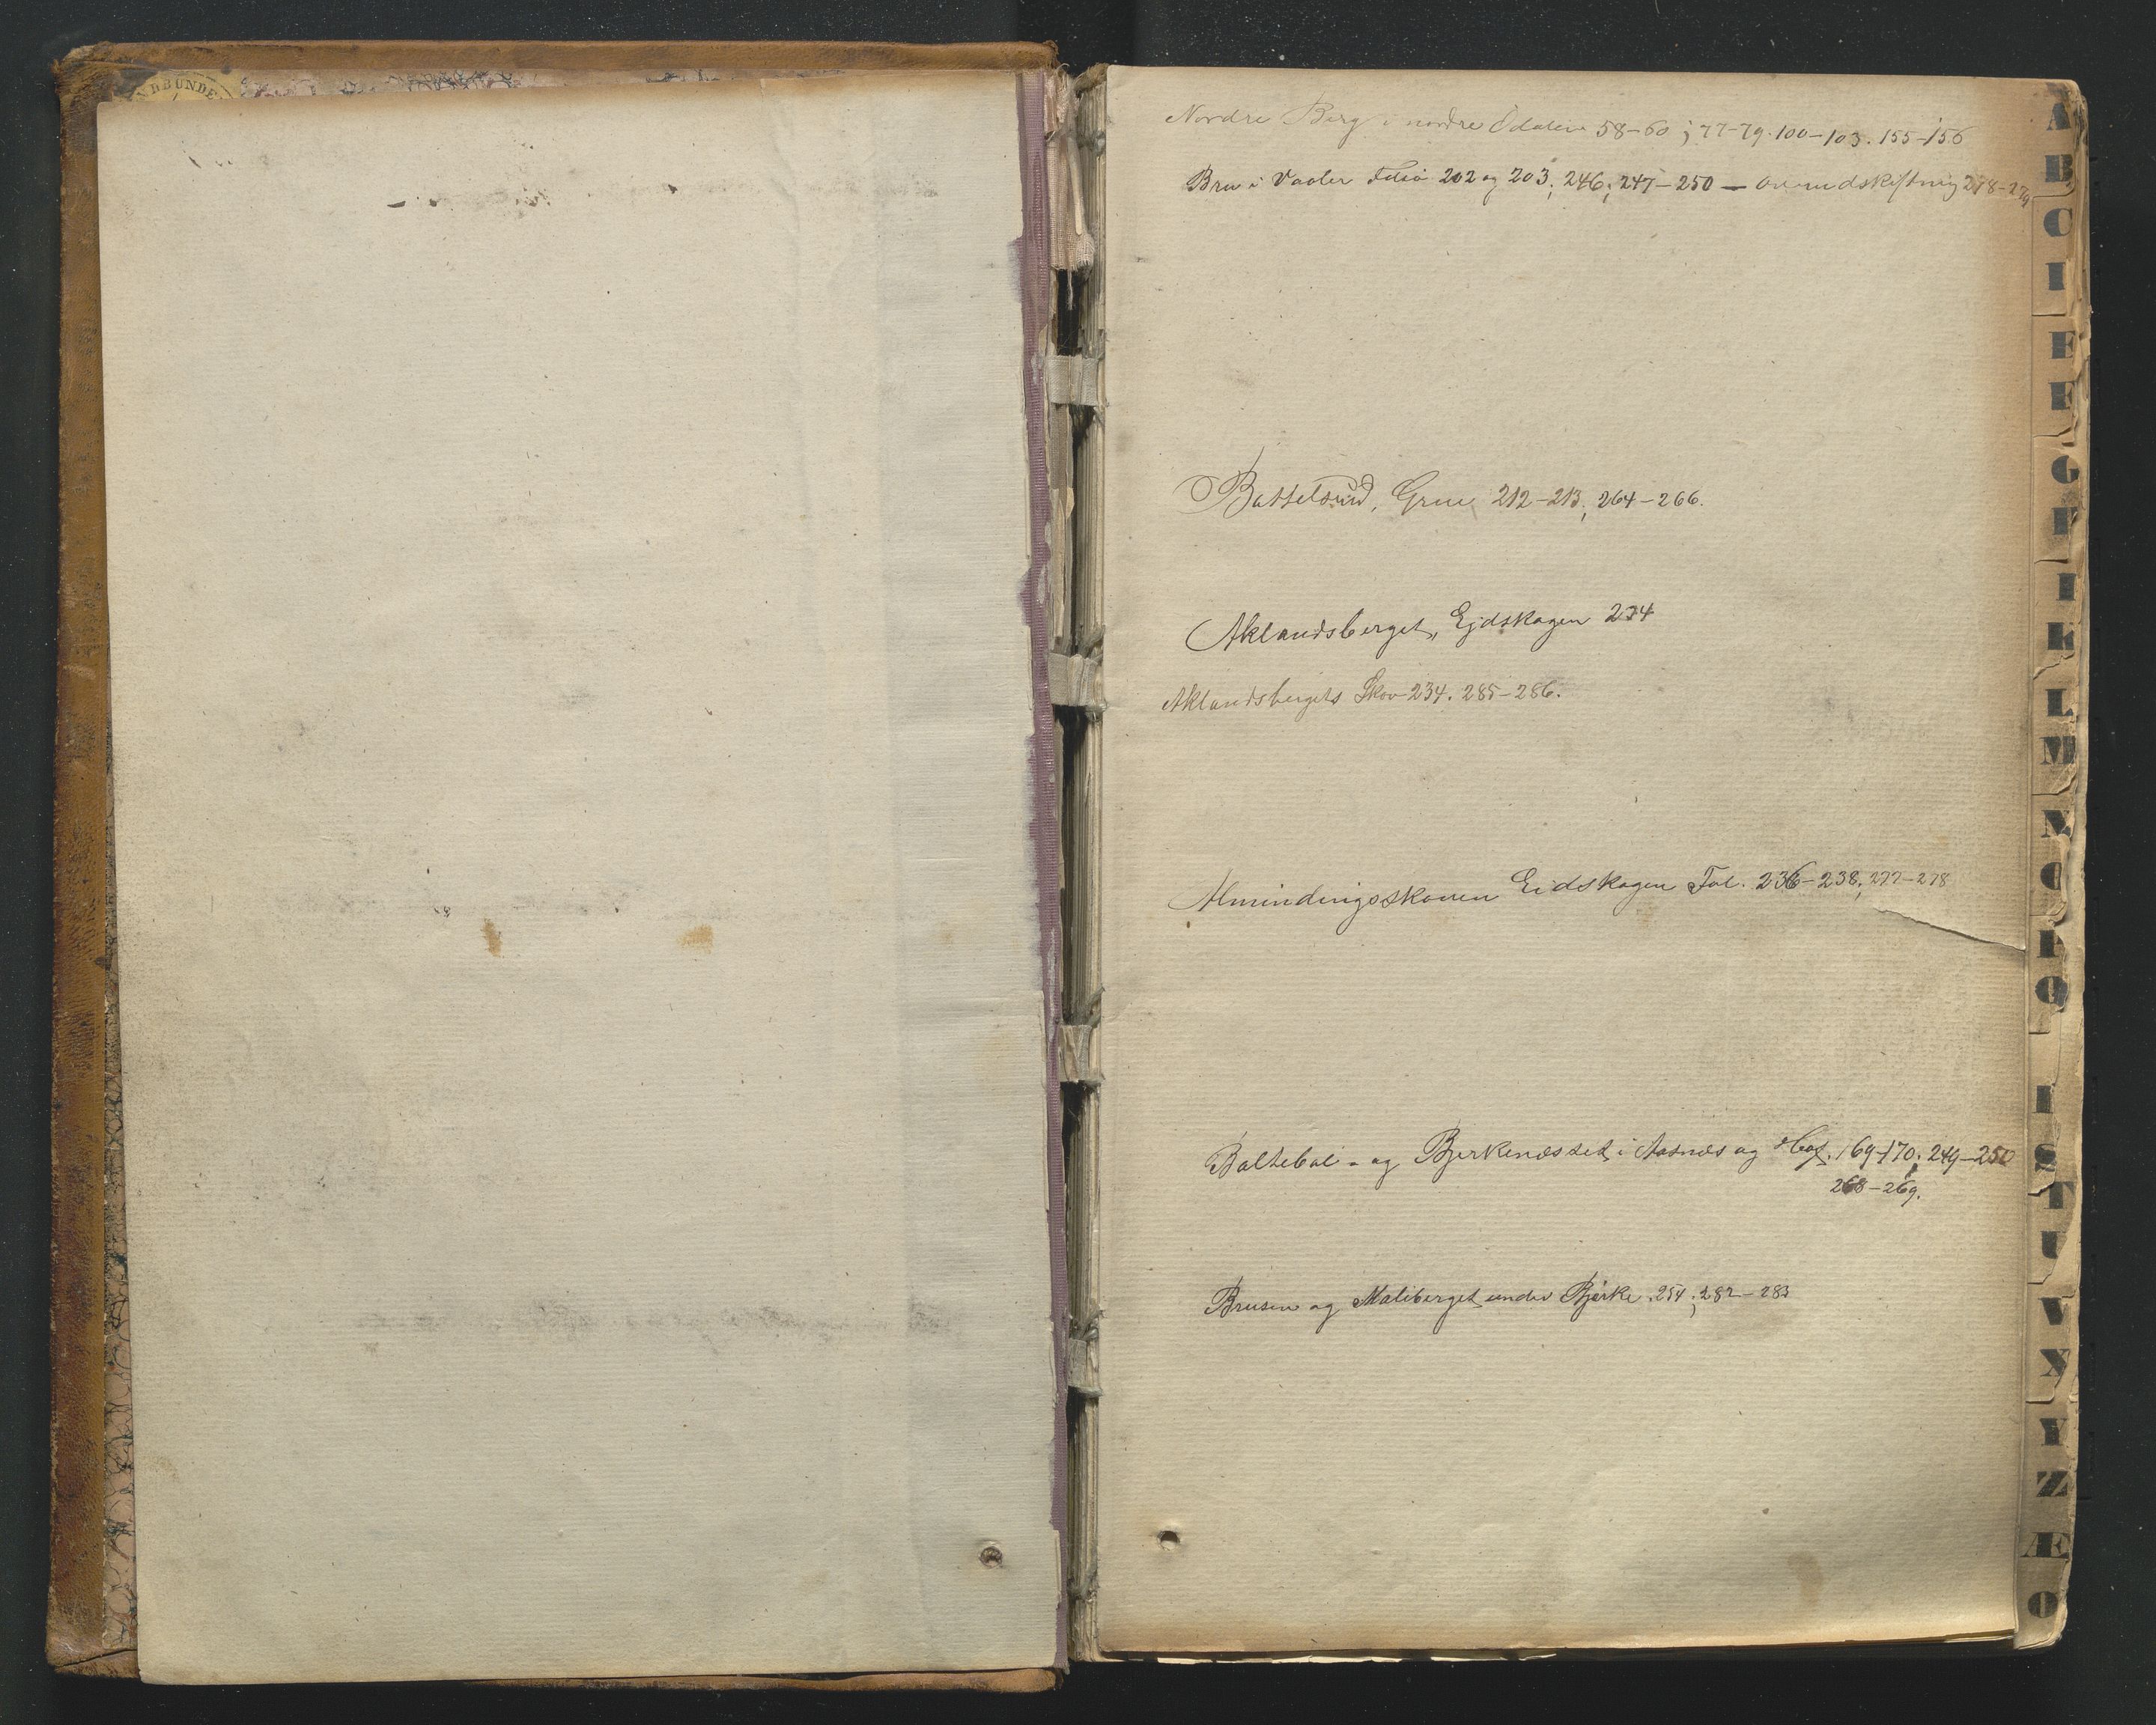 NDBUNDE
Nordre Berg i nordre Odalen 58-60; 77-79. 100-103. 155-156
Bru i Vaaler Folio 202 og 203; 246; 247-250 — Overudskiftning 278-279
Battelsrud, Grue, 212-213; 264-266.
Aklandsberget, Ejdskogen 234
Aklandsbergets Skov 234. 285-286.
Almindingsskoven Eidskogen Fol. 236-238; 277-278
Baltebøl- og Bjerkenæsset i Aasnæs og Hof. 169-170; 249-250
268-269.
Brusen og Maliberget under Bjørke. 254; 282-283
A
B
C
E
F
G
I
K
L
M
N
O
P
Q
S
T
U
V
X
Y
Z
Æ